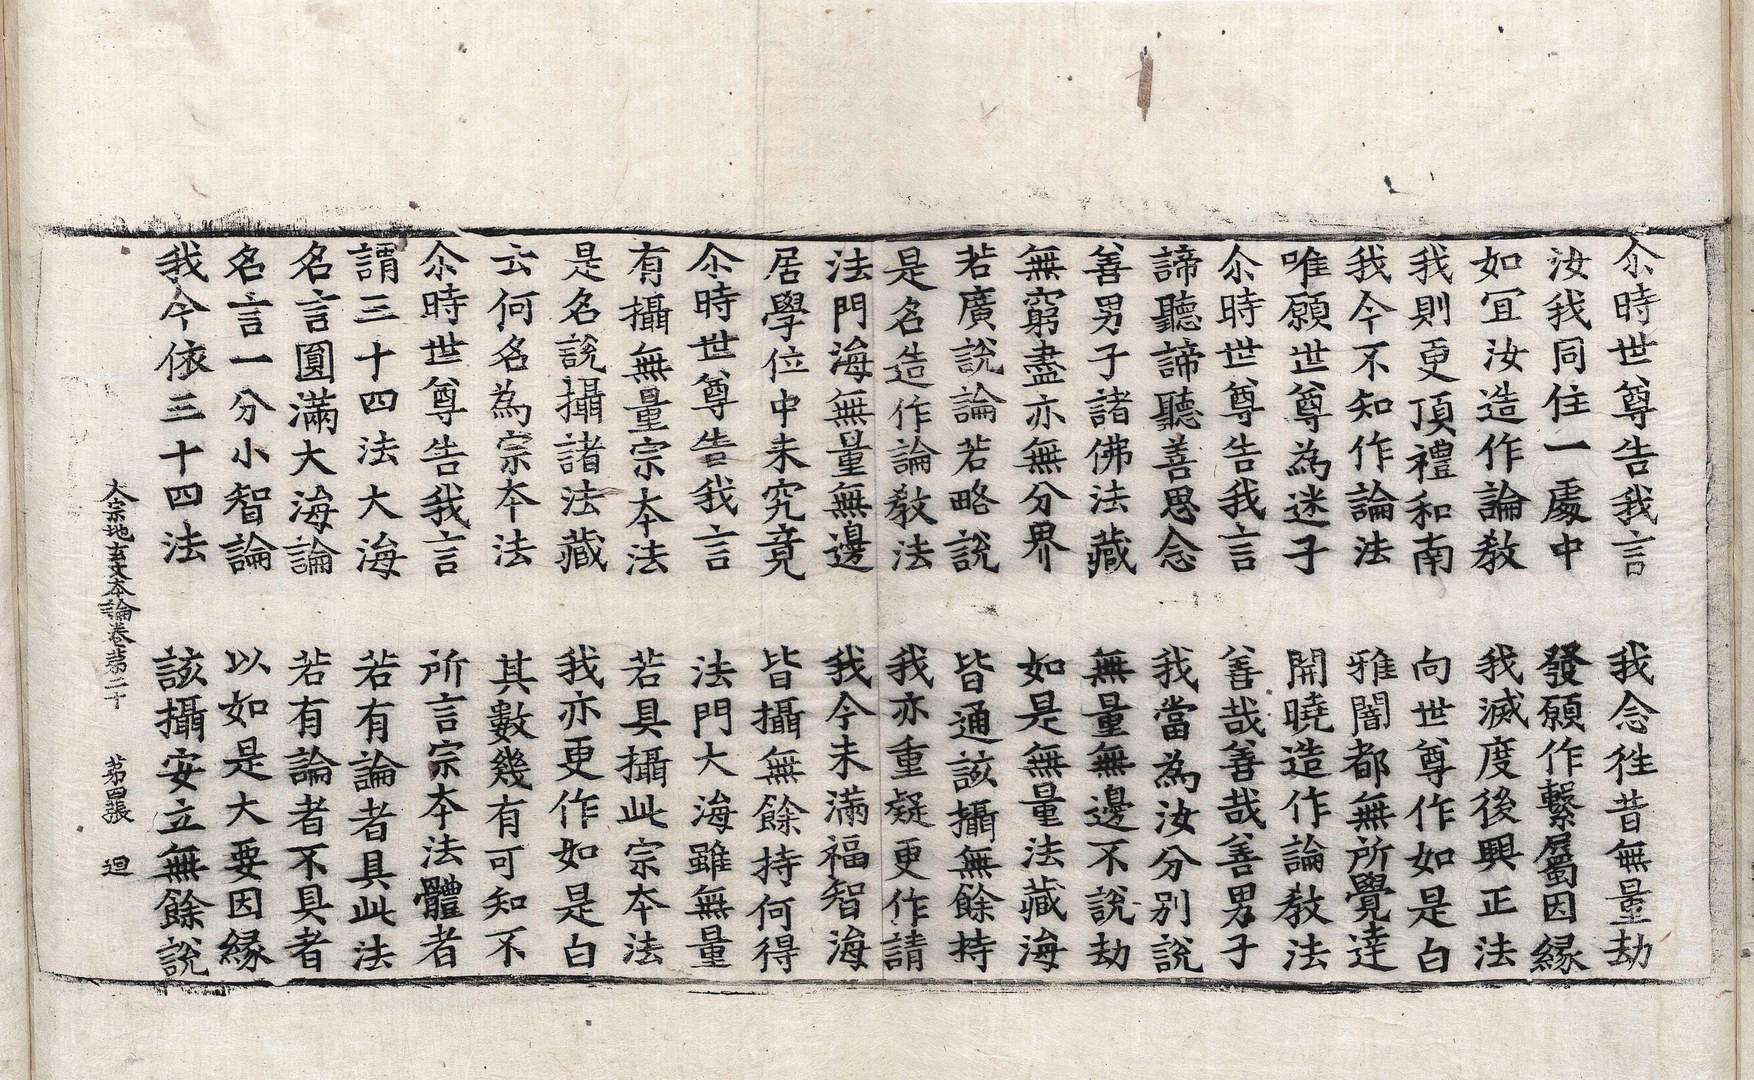 尒時世尊告我言　我念徃昔無量劫
汝我同住一處中　發願作繫屬因縁
如冝汝造作論教　我滅度後興正法
我則更頂禮和南　向世尊作如是白
我今不知作論法　雅闇都無所覺達
唯願世尊為迷子　開曉造作論教法
尒時世尊告我言　善哉善哉善男子
諦聽諦聽善思念　我當為汝分別説
善男子諸佛法藏　無量無邊不説劫
無窮盡亦無分界　如是無量法藏海
若廣説論若略説　皆通該攝無餘持
是名造作論教法　我亦重疑更作請
法門海無量無邊　我今未滿福智海
居學位中未究竟　皆攝無餘持何得
尒時世尊告我言　法門大海雖無量
有攝無量宗夲法　若具攝此宗夲法
是名説攝諸法藏　我亦更作如是白
云何名為宗夲法　其數幾有可知不
尒時世尊告我言　所言宗夲法體者
謂三十四法大海　若有論者具此法
名言圓滿大海論　若有論者不具者
名言一分小智論　以如是大要因縁
我今依三十四法　該攝安立無餘説
大宗地玄文夲論卷第二十　第四張　迴